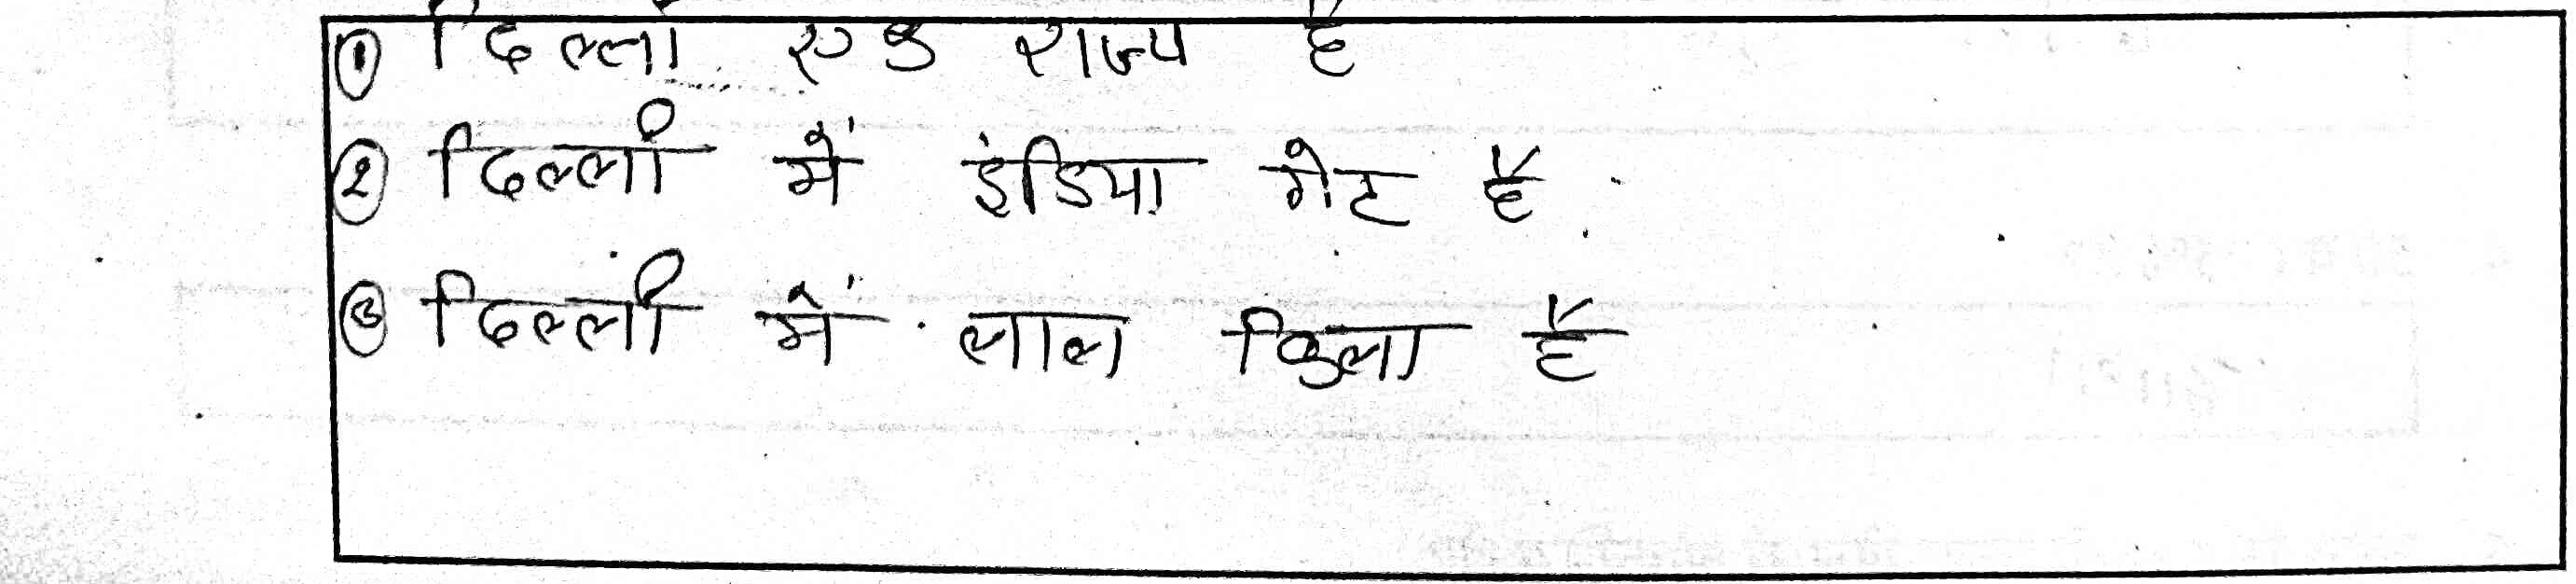 ① दिल्ली एक राज्य है
② दिल्ली में इंडिया गेट है
③ दिल्ली में लाल किला है